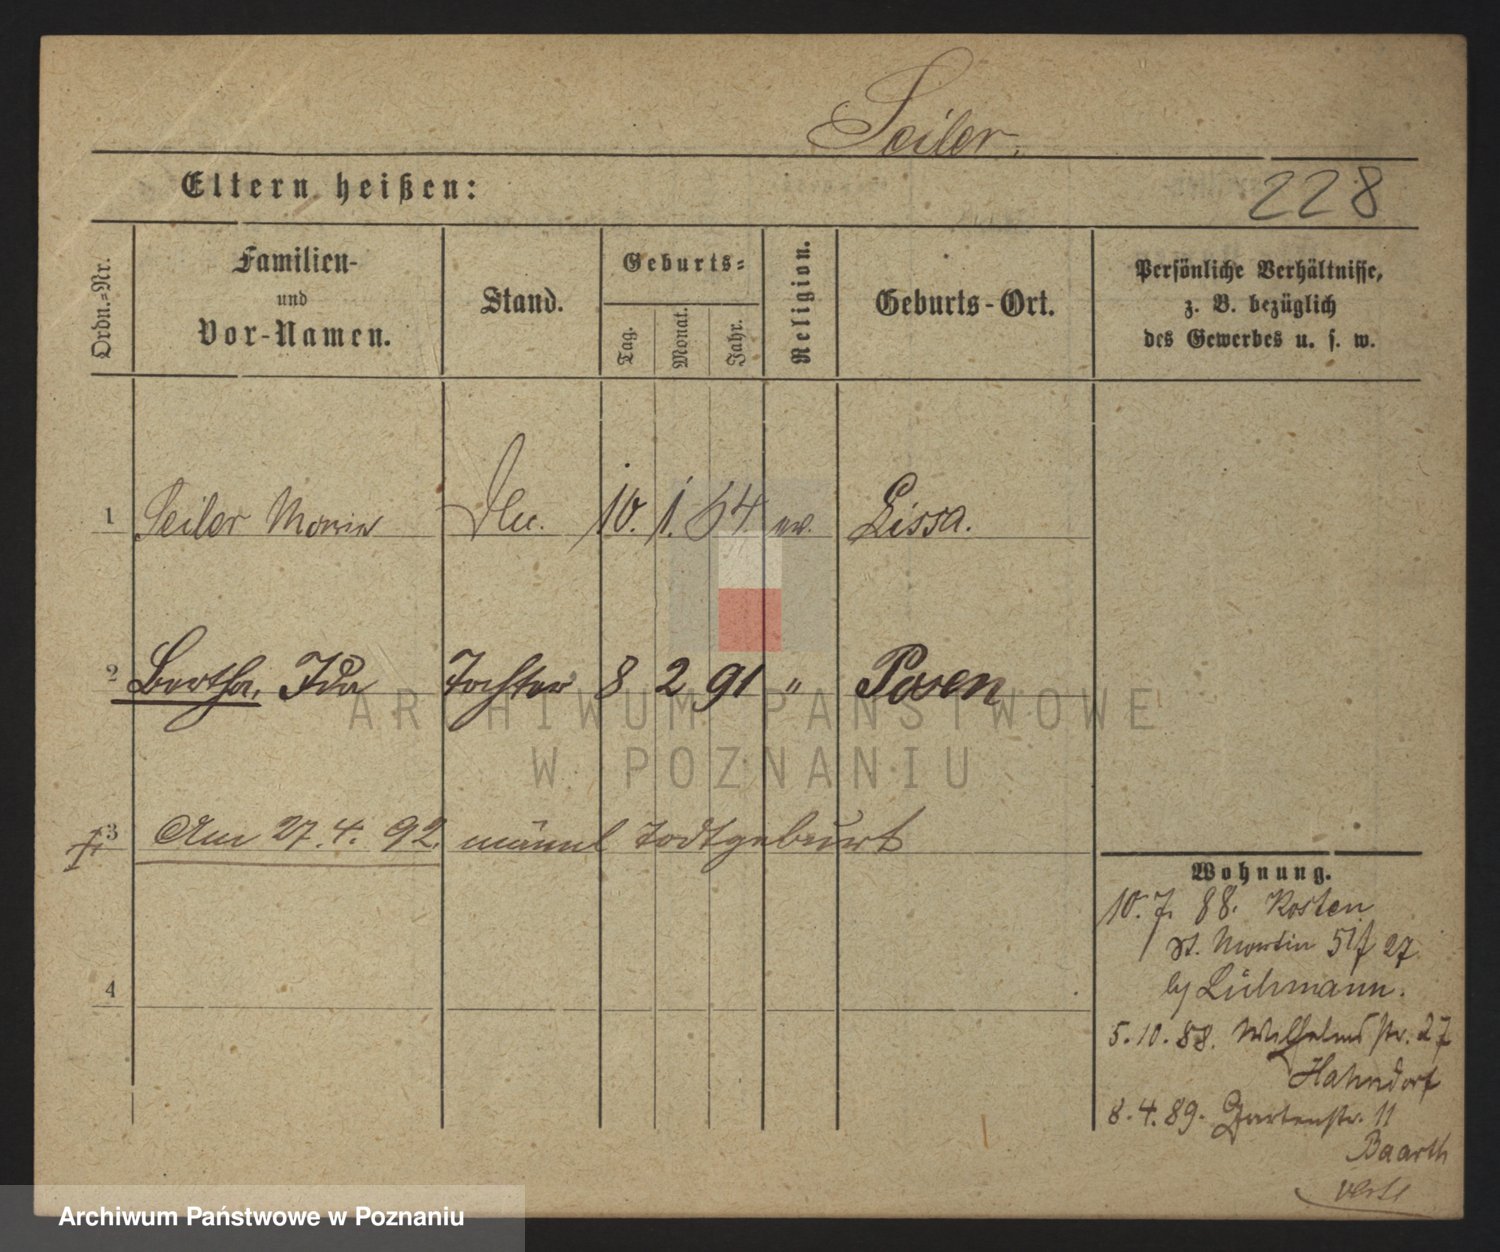 Seiler.
Eltern heißen:
228
Ordn.=Nr.
Familien-
und
Vor-Namen.
Stand.
Geburts=
Tag.
Monat.
Jahr.
Religion.
Geburts-Ort.
Persönliche Verhältnisse,
z. B. bezüglich
des Gewerbes u. s. w.
1 Seiler Maria 10. 1. 64 ev. Lissa.
2 Bertha, Ida Tochter 8 2 91 " Posen
3 Am 27. 4. 92. männl Todtgeburt
4
Wohnung.
10. 7. 88. Kosten
St. Martin 27
by Lühmann.
5.10.88. Wilhelms str. 27
Hahndorf
8.4.89. Gartenstr. 11
Baarth
verte
ARCHIWUM PAŃSTWOWE
W POZNANIU
Archiwum Państwowe w Poznaniu